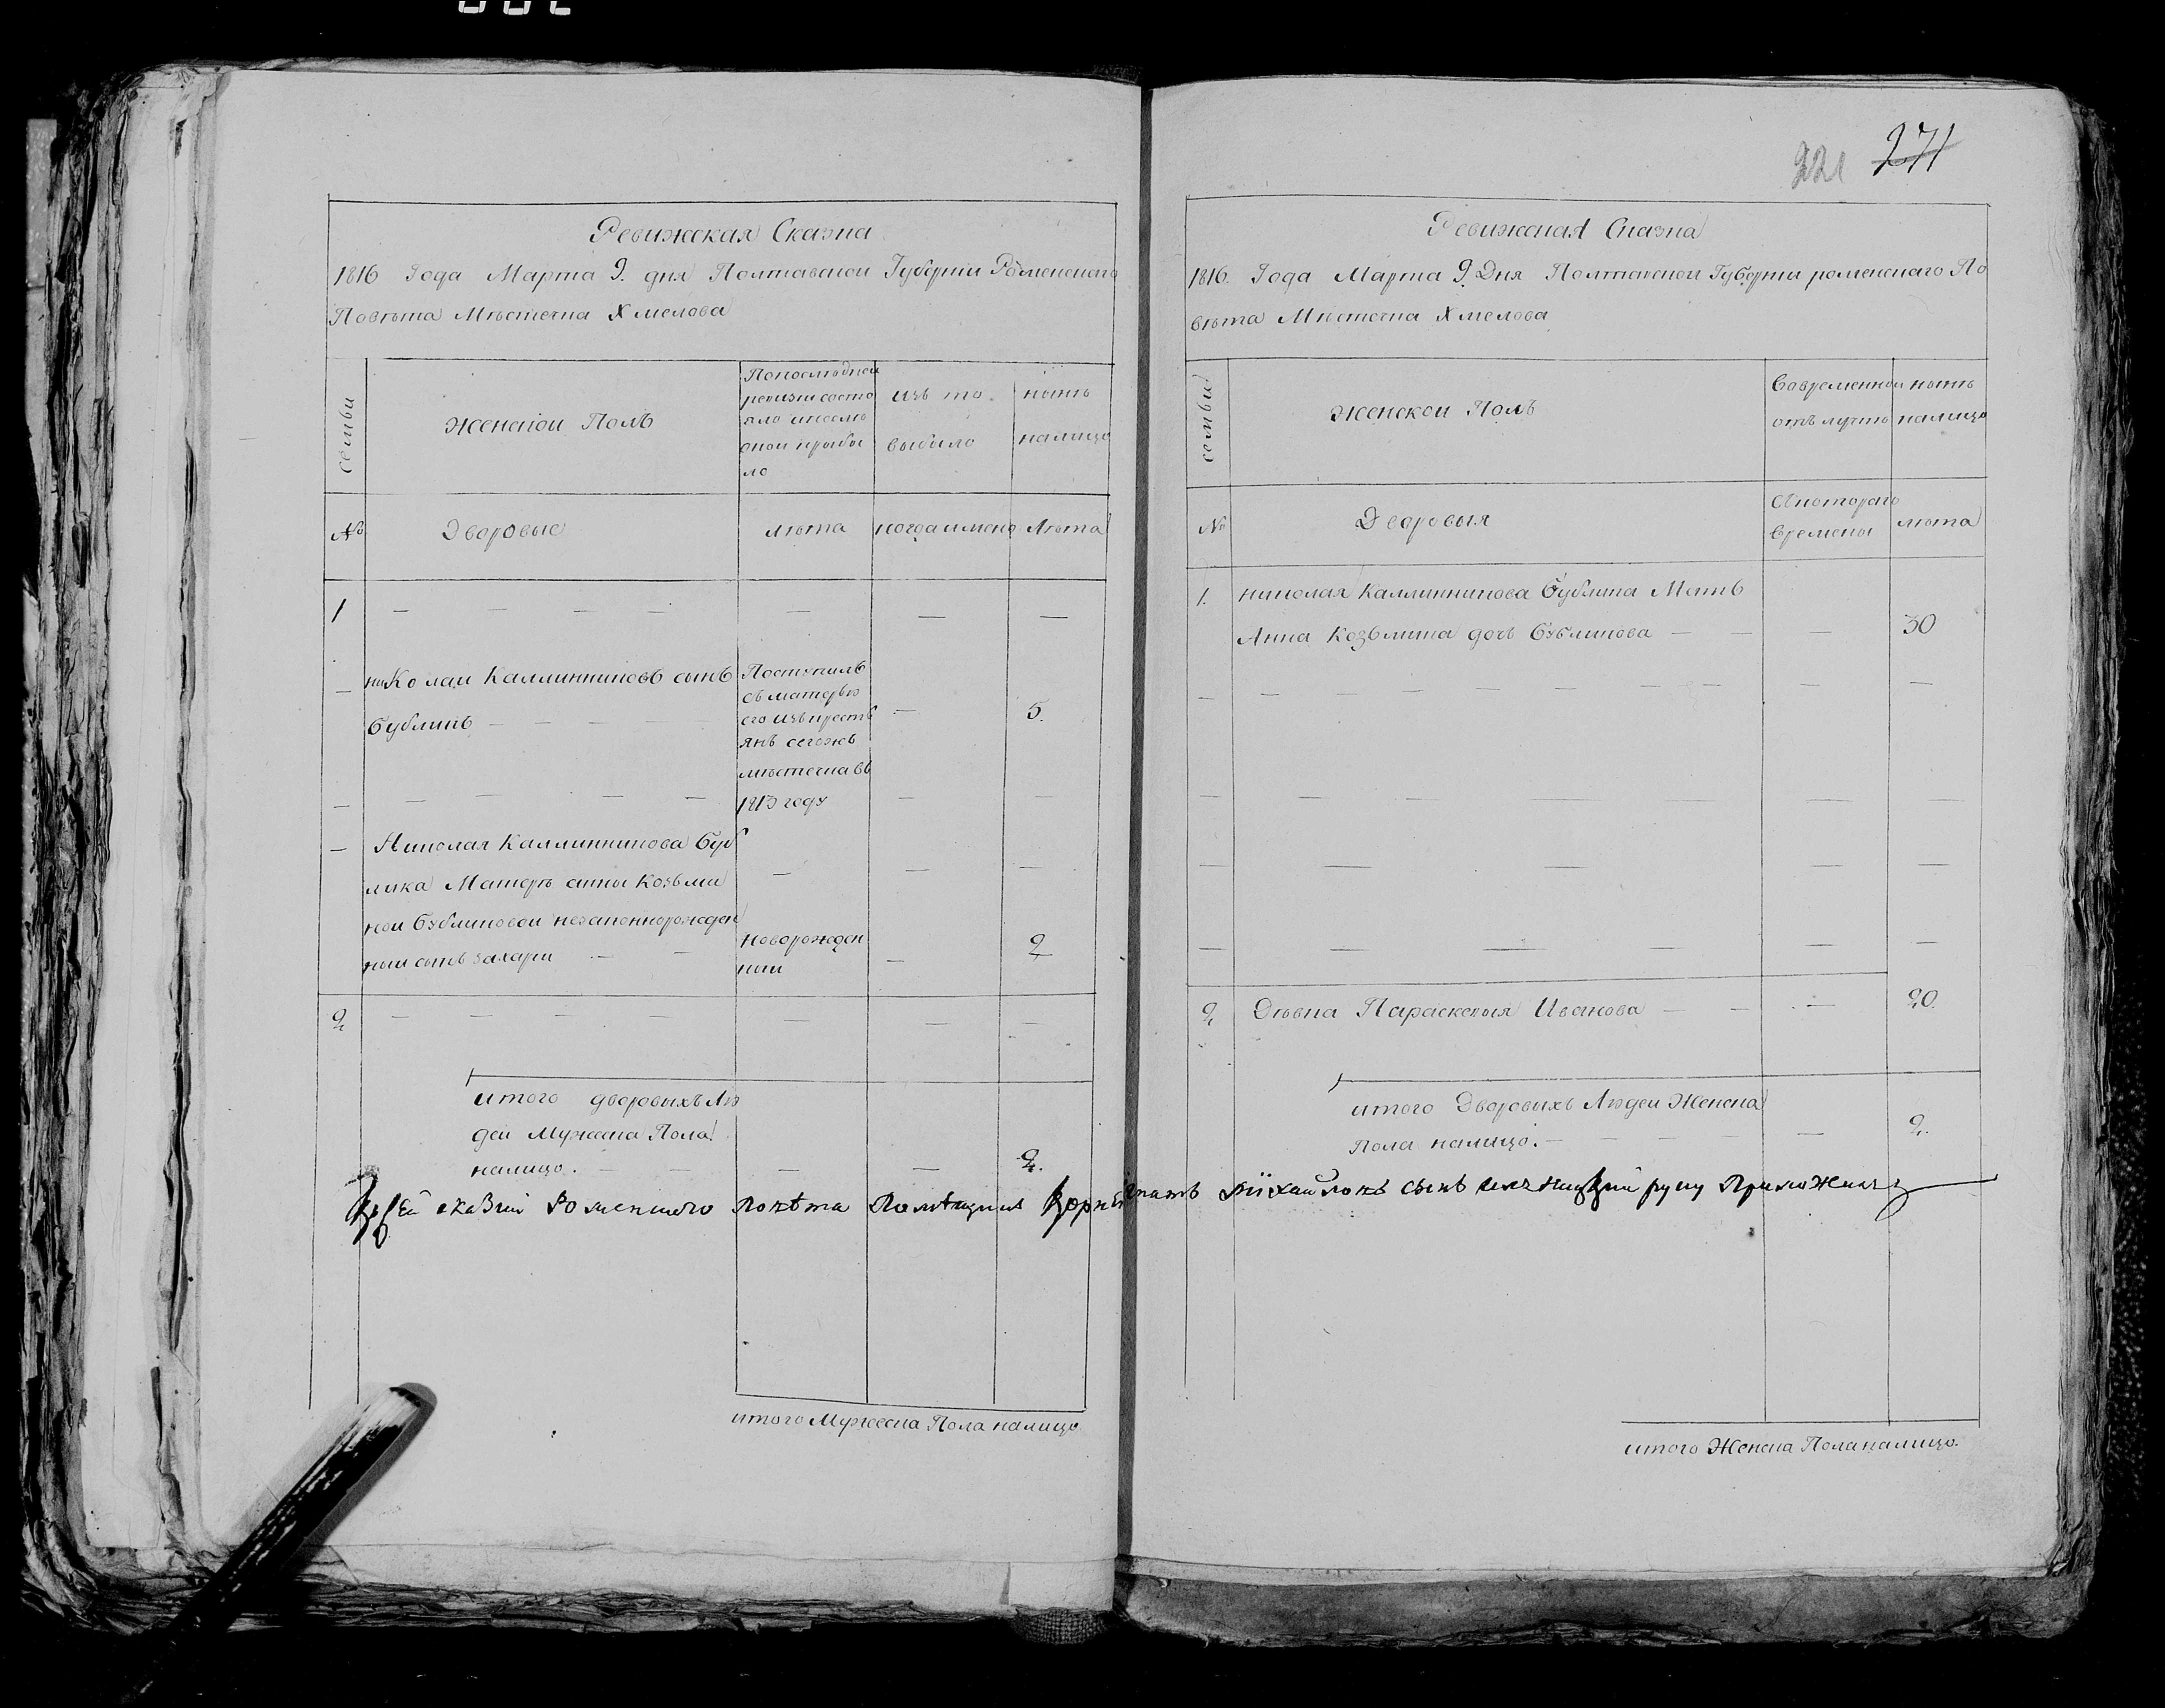 221 271
Ревижская Сказка
1816 Года Марта 9. дня Полтавской Губернии Роменского
Повѣта Мѣстечка Хмелова
семьи
женской Полъ
Попоследней
ревизии состо
яло и после
оной прибы
ло
изъ то
выбыло
ныне
налицо
№
Дворовые
лѣта
когда имено
Лѣта
1
николай Каллиниковъ сынъ
бубликъ
Поступилъ
съ матерью
его изъ кресть
янъ сегожъ
мѣстечка въ
1813 году
5.
Николая Каллиникова Буб
лика Матери анны Козьми
ной бубликовой незаконнорожден
ный сынъ захарий
новорожден
ный
2
2
итого дворовыхъ Лю
дей Мужеска Пола
налицо.
2.
итого Мужеска Пола налицо
Ревижская Сказка
1816. Года Марта 9. Дня Полтавской Губернии роменскаго По
вѣта Мѣстечка Хмелова
семьи
Женской Полъ
Вовременной
отълучке
ныне
налицо
№
Дворовыя
Скотораго
времены
лѣта
1. николая Каллиникова бублика Мать
Анна Козьмина дочь бубликова 30
2 Дѣвка Параскевыя Иванова 20.
итого Дворовыхъ Людей Женска
Пола налицо. 2.
Ксей сказки Роменского повѣта Помѣщикъ Корней Игнатъ Михайловъ сынъ руку Приложилъ
итого Женска Пола налицо.